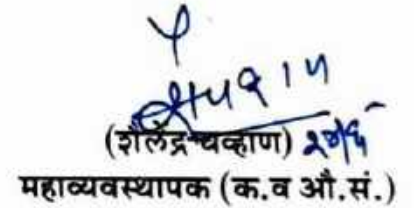 (शैलेंद्र चव्हाण) २०/६
महाव्यवस्थापक (क.व औ.सं.)